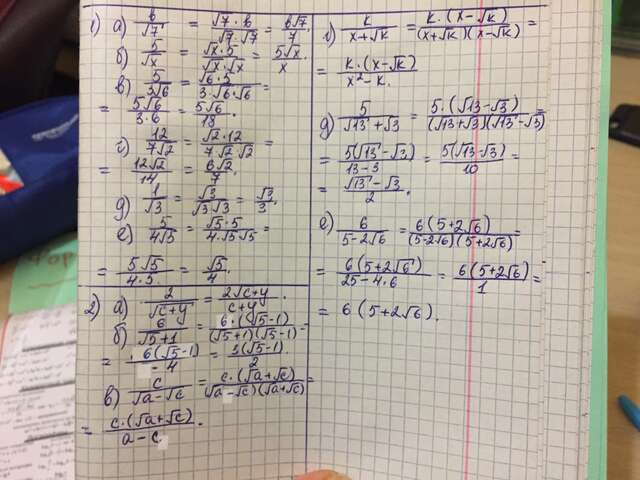 1) а) b/√7 = √7·b/√7·√7 = b√7/7.
б) 5/√x = √x·5/√x·√x = 5√x/x.
в) 5/3√6 = √6·5/3·√6·√6 =
= 5√6/3·6 = 5√6/18.
г) 12/7√2 = √2·12/7√2·√2 =
= 12√2/14 = 6√2/7.
д) 1/√3 = √3/√3√3 = √3/3.
е) 5/4√5 = √5·5/4·√5√5 =
= 5√5/4·5 = √5/4.
2) а) 2/√c+y = 2√c+y/c+y.
б) 6/√5+1 = 6·(√5-1)/(√5+1)(√5-1) =
= 6(√5-1)/4 = 3(√5-1)/2.
в) c/√a-√c = c·(√a+√c)/(√a-√c)(√a+√c) =
= c·(√a+√c)/a-c.
г) k/x+√k = k·(x-√k)/(x+√k)(x-√k) =
= k·(x-√k)/x²-k.
д) 5/√13+√3 = 5·(√13-√3)/(√13+√3)(√13-√3) =
= 5(√13-√3)/13-3 = 5(√13-√3)/10 =
= √13-√3/2.
е) 6/5-2√6 = 6(5+2√6)/(5-2√6)(5+2√6) =
= 6(5+2√6)/25-4·6 = 6(5+2√6)/1 =
= 6(5+2√6).